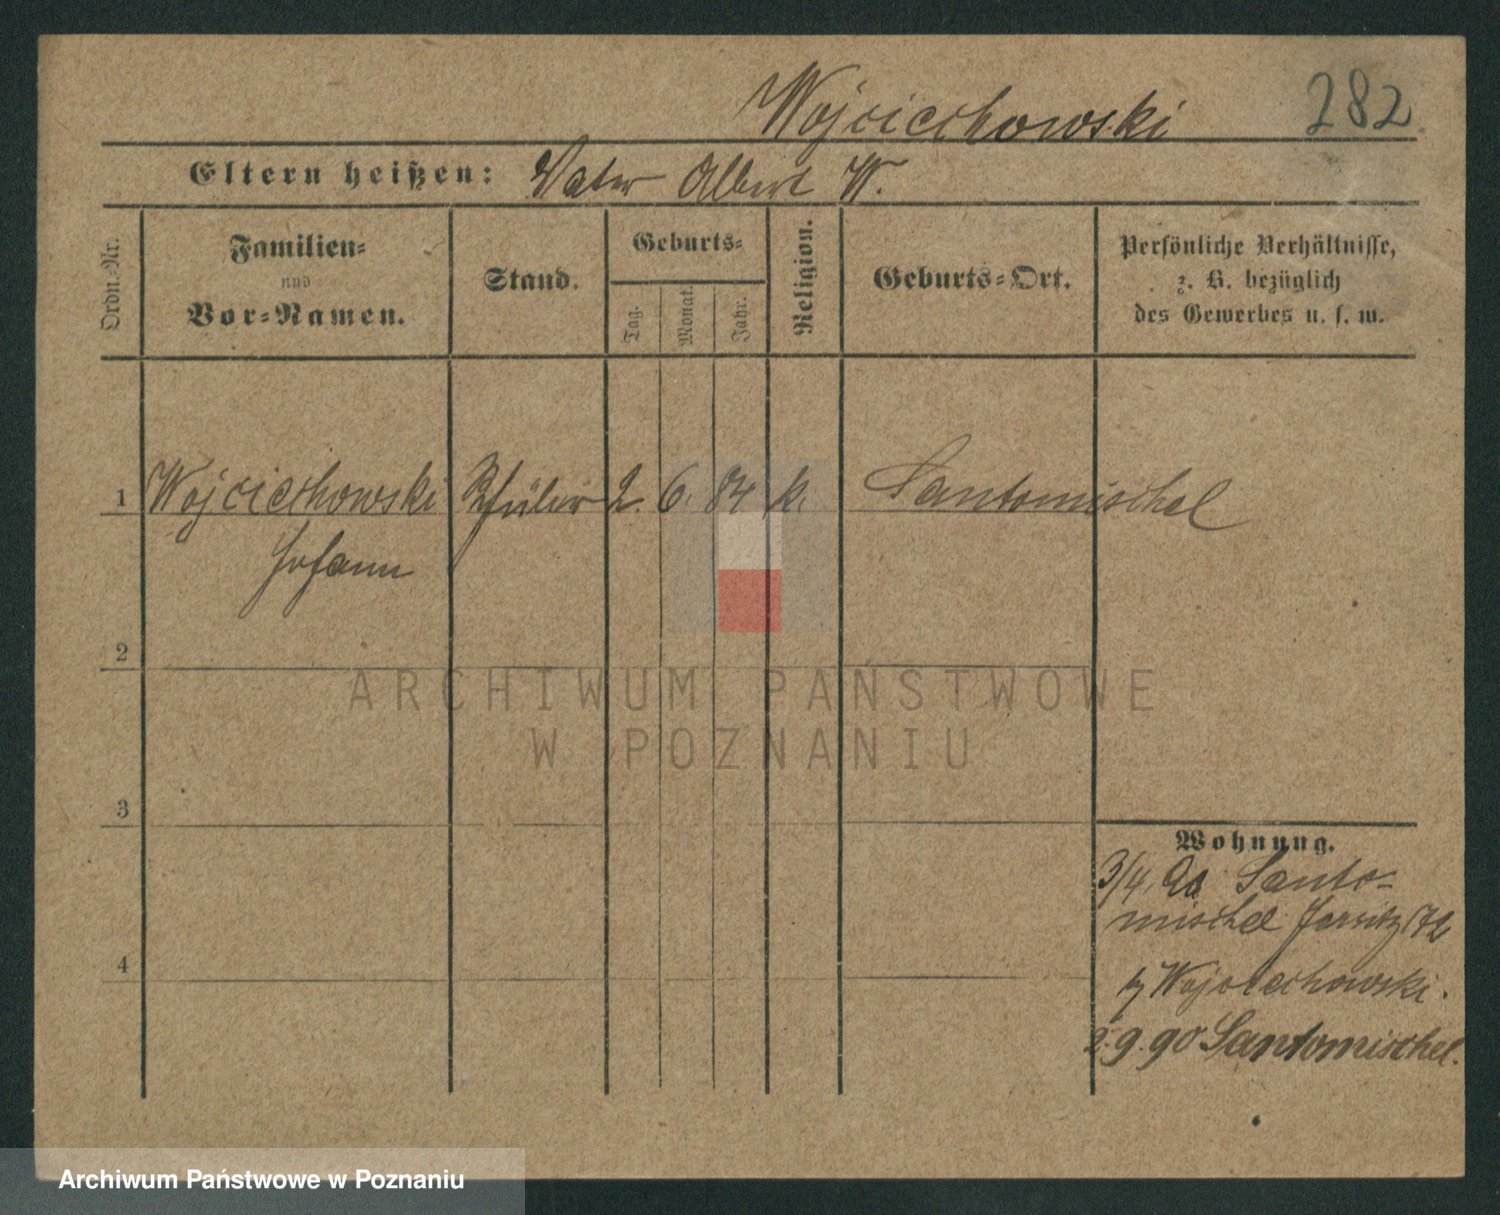 Wojciechowski 282
Eltern heißen: Vater Albert W.
Ordn.-Nr.
Familien-
und
Vor-Namen.
Stand.
Geburts-
Tag.
Monat.
Jahr.
Religion.
Geburts-Ort.
Persönliche Verhältnisse,
z. B. bezüglich
des Gewerbes u. s. w.
1 Wojciechowski Schüler 2. 6. 84 k. Santomischel
Johann
2
ARCHIWUM PAŃSTWOWE
W POZNANIU
3
Wohnung.
3/4. 90 Santo-
mischel Jersitz 172
4
b/ Wojciechowski.
2.9.90 Santomischel.
Archiwum Państwowe w Poznaniu